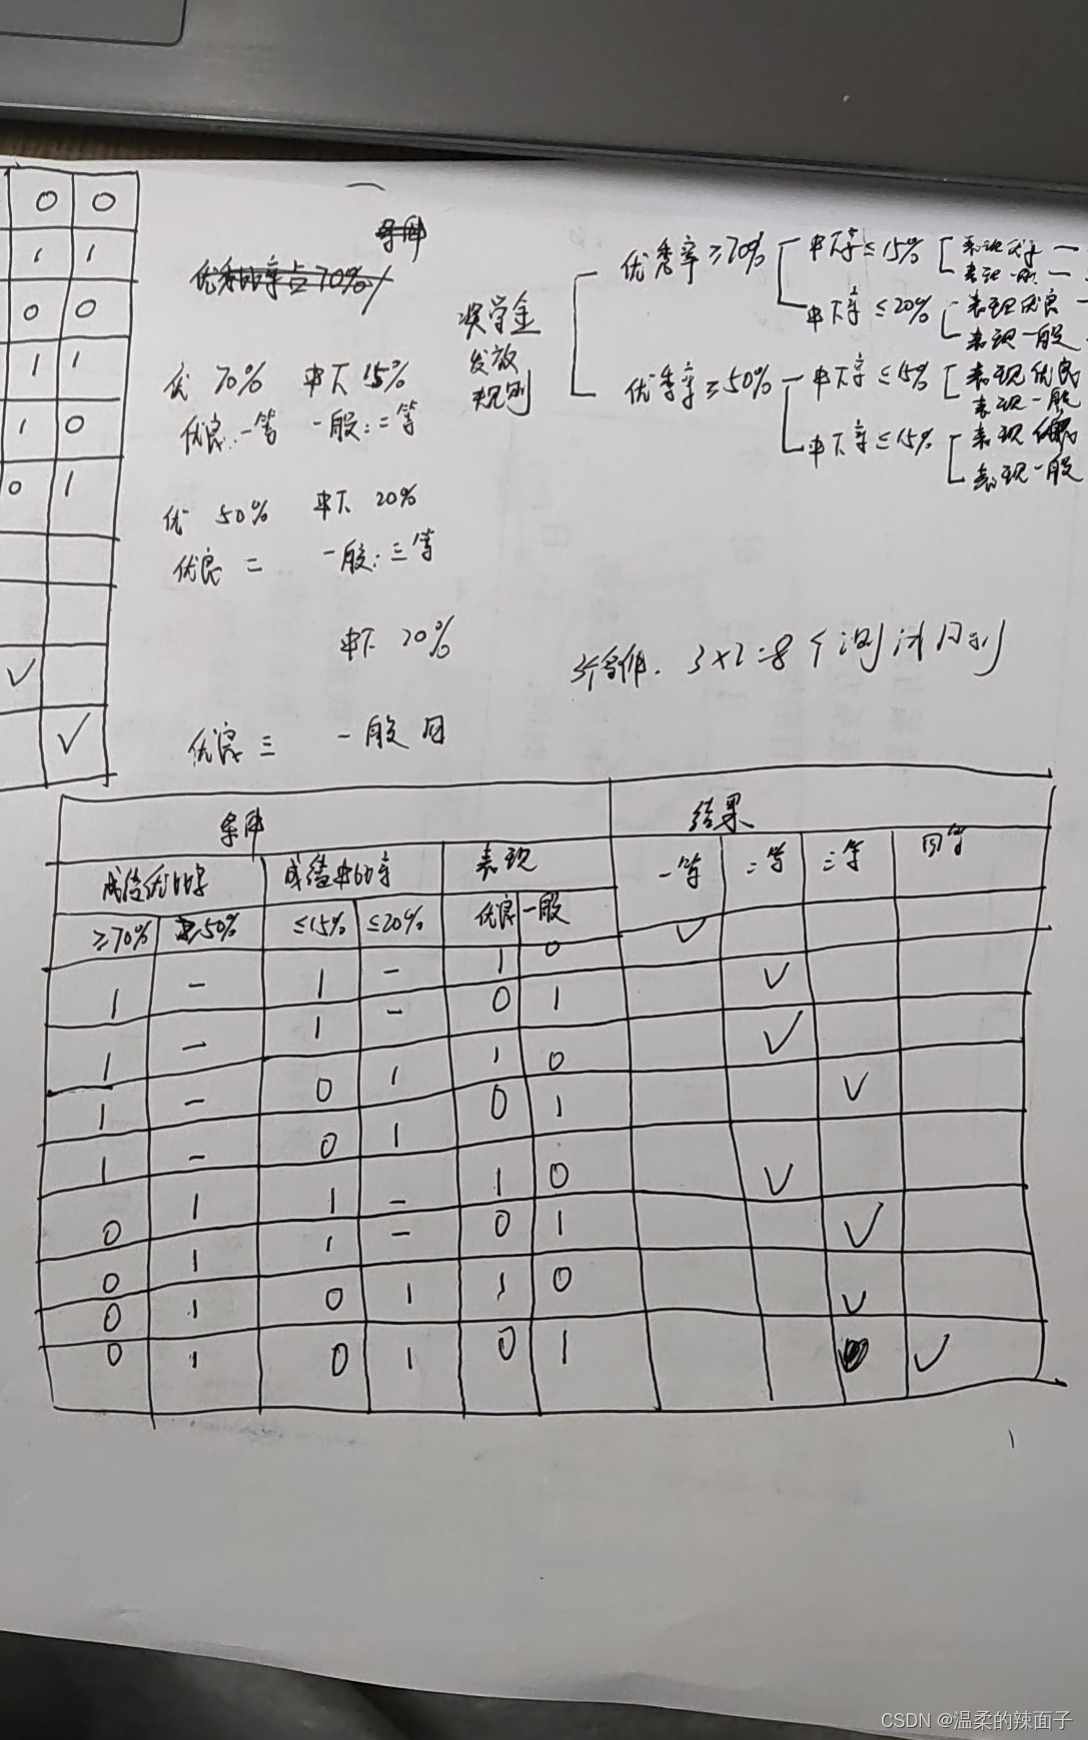 0 0
1 1
0 0
1 1
1 0
0 1
✓
✓
优 70% 中下 15%
优良:一等 一般:二等
优 50% 中下 20%
优良 二 一般:三等
中下 20%
优良 三 一般 四
奖学金
发放
规则
优秀率≥70% 中下率≤15% 表现优良
表现一般
中下率≤20% 表现优良
表现一般
优秀率≥50% 中下率≤15% 表现优良
表现一般
中下率≤15% 表现
表现一般
3个条件. 3×2=8个测试用例
条件 结果
成绩优的率 成绩中的率 表现 一等 二等 三等 四等
≥70% ≥50% ≤15% ≤20% 优良 一般
1 - 1 - 1 0 ✓
1 - 1 - 0 1 ✓
1 - 0 1 1 0 ✓
1 - 0 1 0 1 ✓
0 1 1 - 1 0 ✓
0 1 1 - 0 1 ✓
0 1 0 1 1 0 ✓
0 1 0 1 0 1 ✓
CSDN @温柔的辣面子